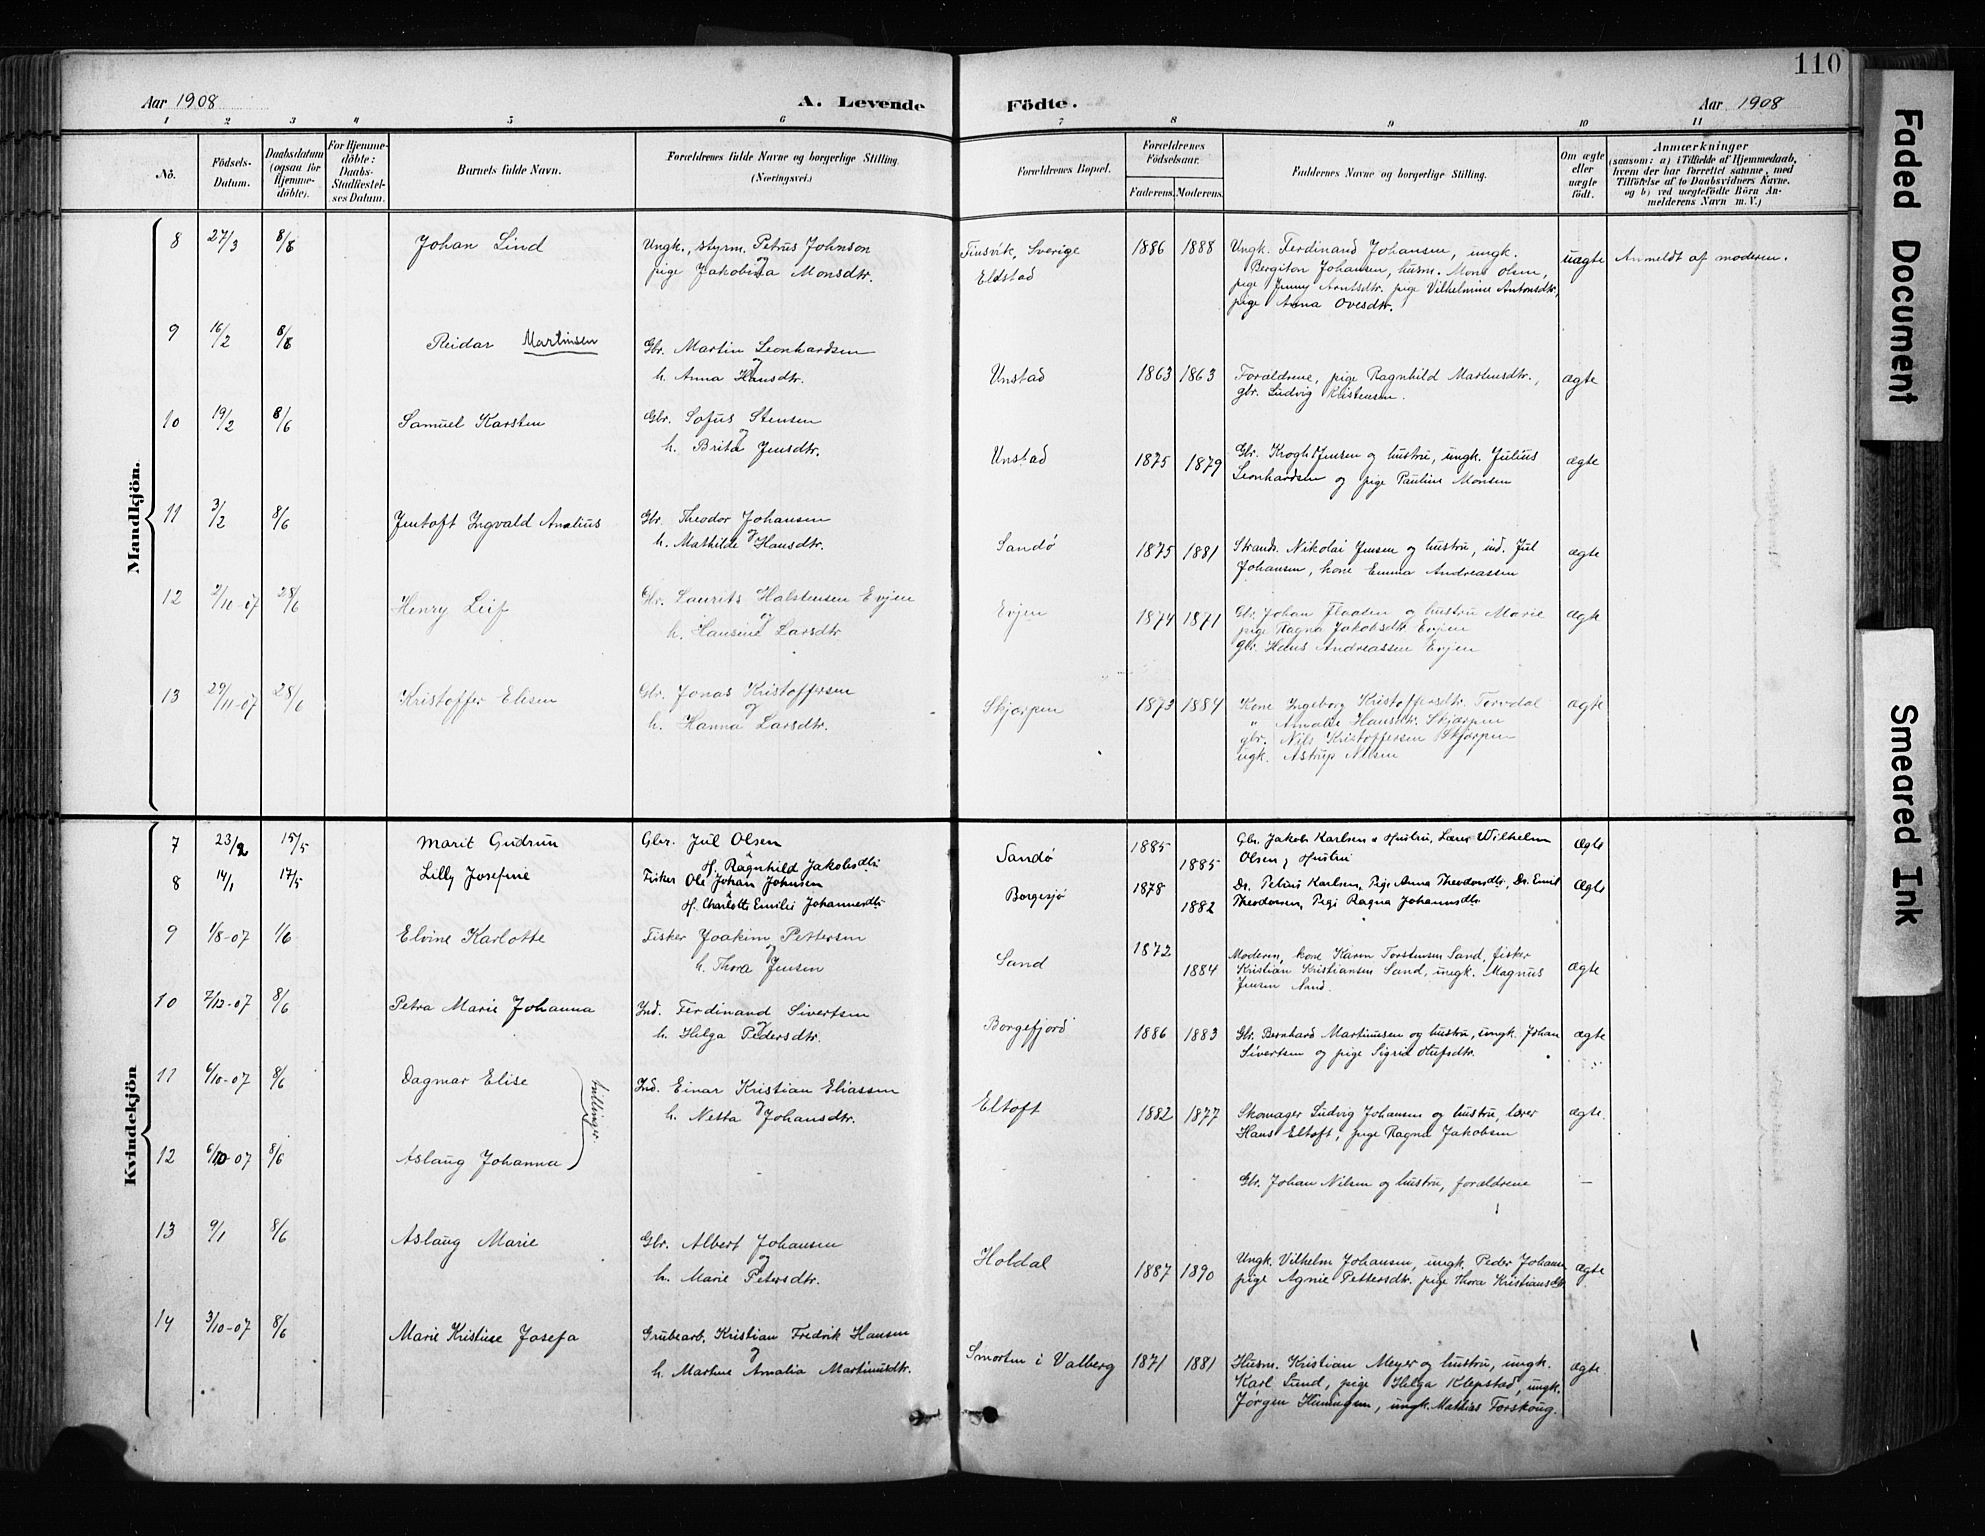 110
Aar 1908 A. Levende Födte. Aar 1908
1 2 3 4 5 6 7 8 9 10 11
No. Födsels-Datum. Daabsdatum (ogsaa for Hjemmedöbte). For Hjemmedöbte: Daabs-Stadfæstelses Datum. Barnets fulde Navn. Forældrenes fulde Navne og borgerlige Stilling (Næringsvei). Forældrenes Bopæl. Forældrenes Födselsaar. Faderens. Moderens. Faddernes Navne og borgerlige Stilling. Om ægte eller uægte födt. Anmærkninger (saasom: a) i Tilfælde af Hjemmedaab, hvem der har forrettet samme, med Tilföielse af to Daabsvidners Navne. og b) ved uægtefödte Börn Anmelderens Navn m. V.)
Mandkjön.
8 27/3 8/8 Johan Lind Ungk., styrm. Petrus Johnson
og
pige Jakobina Monsdtr.
Sverige
Eldstad
1886 1888 Ungk. Ferdinand Johansen, ungk.
Bergiton Johansen, husm. Mons Olsen,
pige Jenny Arntsdtr. pige Vilhelmine Antonsdtr,
pige Anna Ovesdtr.
uægte Anmeldt af moderen.
9 16/2 8/8 Reidar Martinsen Gbr. Martin Leonhardsen
og
h. Anna Hansdtr.
Unstad 1863 1863 Forældrene, pige Ragnhild Martinsdtr.,
gbr. Ludvig Kristensen.
ægte
10 19/2 8/6 Samuel Karsten Gbr. Sofus Stensen
og
h. Brita Jensdtr.
Unstad 1875 1879 Gbr. Krogh Jensen og hustru, ungk. Julius
Leonhardsen og pige Pauline Monsen
ægte
11 3/2 8/6 Jentoft Ingvald Analius Gbr. Theodor Johansen
og
h. Mathilde Hansdtr.
Sandø 1875 1881 Strands. Nikolai Jensen og hustru, ind. Jul
Johansen, kone Emma Andreassen
ægte
12 2/11-07 28/6 Henry Leif Gbr. Laurits Halstensen Evjen
og
h. Hansine Larsdtr
Evjen 1874 1871 Gbr. Johan Flaaten og hustru Marie
pige Ragna Jakobsdtr. Evjen
gbr. Hans Andreassen Evjen
ægte
13 29/11-07 28/6 Kristoffer Elisen Gbr. Jonas Kristoffersen
og
h. Hanna Larsdtr.
Skjærpen 1873 1884 Kone Ingeborg Kristoffersdtr. Torvdal
" Amalie Hansdtr. Skjærpen
gbr. Nils Kristoffersen Skjærpen
ugk. Astrup Nilsen
ægte
Kvindekjön
7 23/2 15/5 Marit Gudrun Gbr. Jul Olsen
H. Ragnhild Jakobsdtr
Sandø 1885 1885 Gbr. Jakob Karlsen & Hustru, Lærer Wilhelm
Olsen & Hustru
Ægte
8 14/1 17/5 Lilly Josefine Fisker Ole Johan Johnsen
&
H. Charlotte Emilie Johannesdtr
Borgesjø 1878 1882 Dr. Petrus Karlsen, Pige Anna Theodorsdtr, Dr. Emil
Theodorsen, Pige Ragna Johannsdtr
Ægte
9 1/8-07 1/6 Elvine Karlotte Fisker Joakim Pettersen
og
h. Thora Jensen
Sand 1872 1884 Moderen, kone Karen Torstensen Sand, fisker
Kristian Kristiansen Sand, ungk. Magnus
Jensen Sand.
ægte
10 7/12-07 8/6 Petra Marie Johanna Ind. Ferdinand Sivertsen
og
h. Helga Pedersdtr.
Borgefjord 1886 1883 Gbr. Bernhard Martinussen og hustru, ungk. Johan
Sivertsen og pige Sigrid Olufsdtr.
ægte
11 6/10-07 8/6 Dagmar Elise tvillinger Ind. Einar Kristian Eliassen
og
h. Netta Johansdtr.
Eltoft 1882 1877 Skomager Ludvig Johansen og hustru, lærer
Hans Eltoft, pige Ragna Jakobsen
ægte
12 6/10-07 8/6 Aslaug Johanna Gbr. Johan Nilsen og hustru, forældrene —
13 9/1 8/6 Aslaug Marie Gbr. Albert Johansen
og
h. Marie Petersdtr.
Holdal 1887 1890 Ungk. Vilhelm Johansen, ungk. Peder Johansen
pige Agnie Pettersdtr. pige Thora Kristiansdtr.
ægte
14 3/10-07 8/6 Marie Kristine Josefa Grubearb. Kristian Fredrik Hansen
og
h. Martine Amalia Martinusdtr.
Smorten i Valberg 1871 1881 Husm. Kristian Meyer og hustru, ungk.
Karl Lund, pige Helga Klepstad, ungk.
Jørgen Henningsen, ungk. Mathias Torskoug.
ægte
Faded Document
Smeared Ink